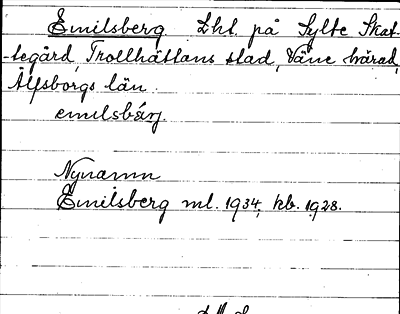 Emilsberg Lht. på Sylte Skat-
tegård, Trollhättans stad, Väne härad,
Älfsborgs län.
emilsbárj.
Nynamn
Emilsberg ml. 1934, kb. 1928.